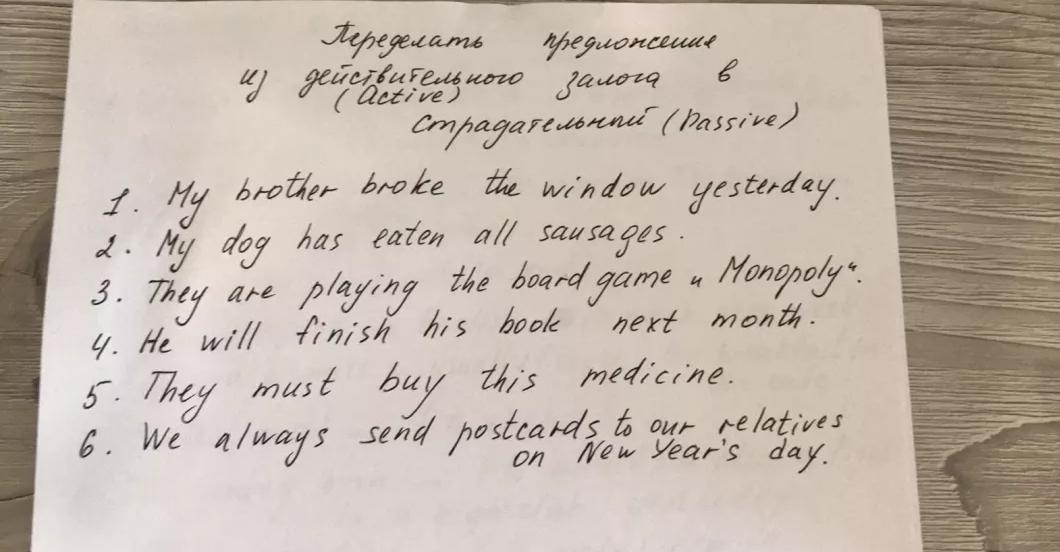 Переделать предложение
из действительного залога в
(Active)
Страдательный (Passive)
1. My brother broke the window yesterday.
2. My dog has eaten all sausages.
3. They are playing the board game „Monopoly“.
4. He will finish his book next month.
5. They must buy this medicine.
6. We always send postcards to our relatives
on New Year's day.